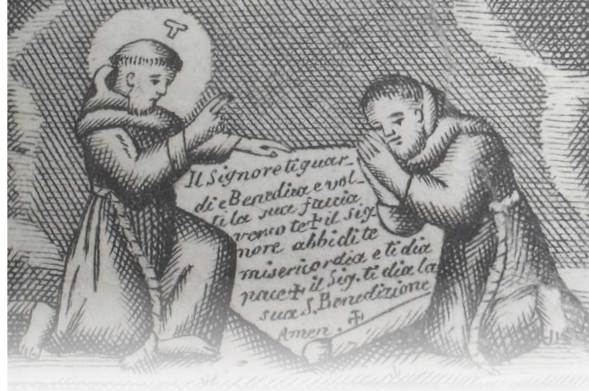 T
Il Signore ti guar-
di e Benedica e vol-
ti la sua faccia
verso te ✝ il Sig-
nore abbi di te
misericordia e ti dia
pace ✝ il Sig. ti dia la
sua S. Benedizione
Amen. ✝